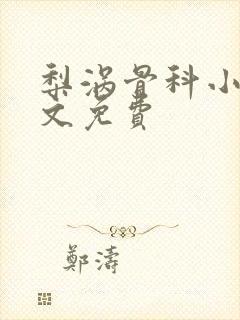 梨涡骨科小
文免費
鄭濤